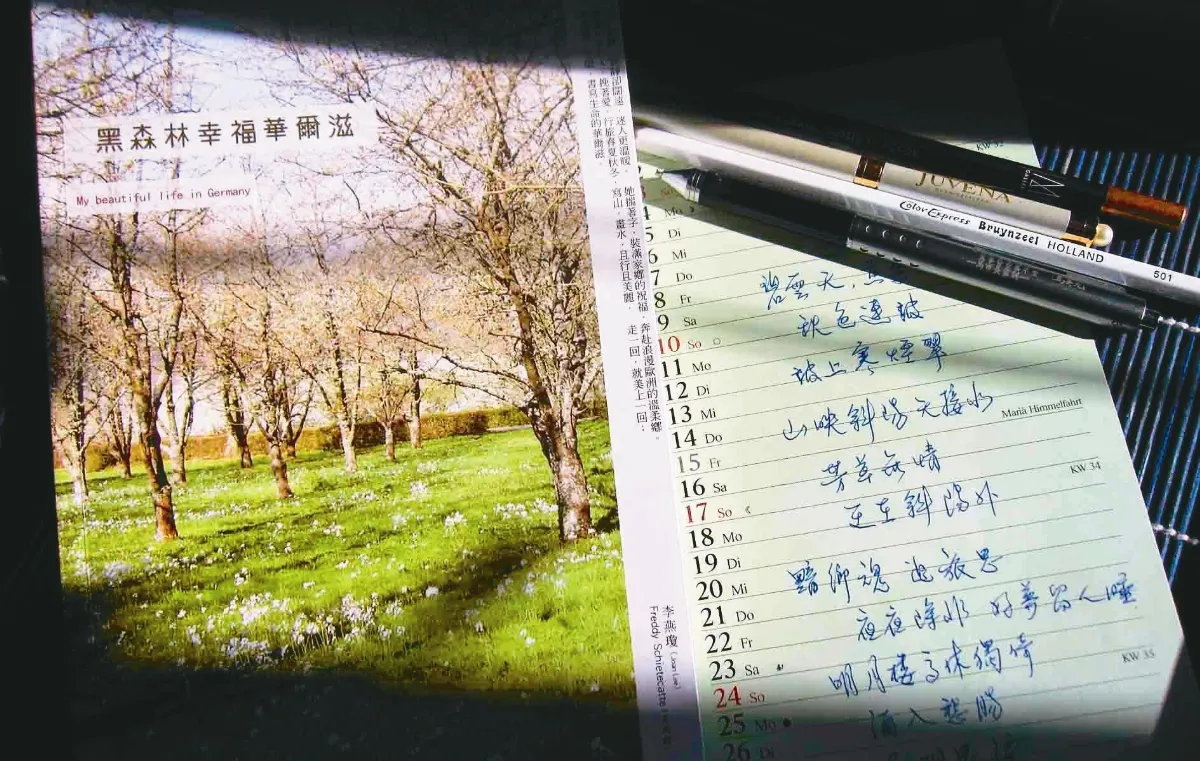 黑森林幸福華爾滋
My beautiful life in Germany
迷人更溫暖,她揣著字,裝滿家鄉的祝福,奔赴浪漫歐洲的溫柔鄉。
挽著愛,行旅春夏秋冬,寫山,畫水,且行且美麗,走一回,就美上一回;
書寫生命的華爾滋。
李燕瓊 (Joan Lee)
Freddy Schietecatte
JUVENA
Color Express Bruynzeel HOLLAND 501
KW 32
4 Mo
5 Di
6 Mi
7 Do
8 Fr 碧雲天,
9 Sa 秋色連波
10 So
11 Mo 波上寒煙翠
12 Di
13 Mi 山映斜陽天接水
14 Do Mariä Himmelfahrt
15 Fr 芳草無情
16 Sa
17 So 在斜陽外 KW 34
18 Mo
19 Di
20 Mi 黯鄉魂 追旅思
21 Do
22 Fr 夜夜除非 好夢留人睡
23 Sa
24 So 明月樓高休獨倚 KW 35
25 Mo 酒入愁腸
26 Di